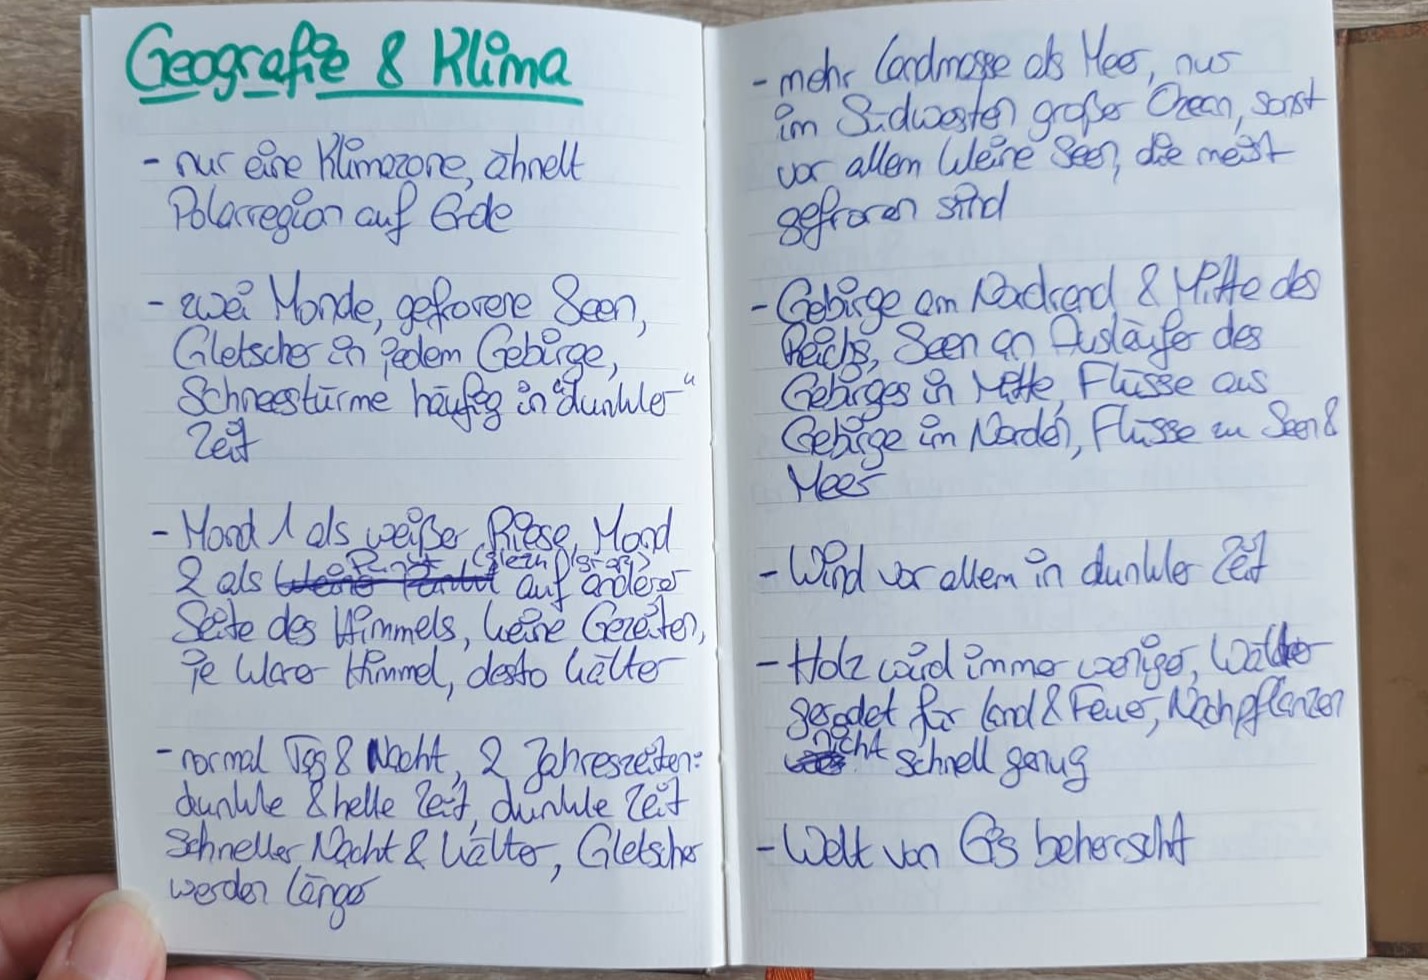 Geografie & Klima
- nur eine Klimazone, ähnelt
Polarregion auf Erde
- zwei Monde, gefrorene Seen,
Gletscher in jedem Gebirge,
Schneestürme häufig in "dunkler"
Zeit
- Mond 1 als weißer Riese, Mond
2 als Punkt (gleich groß) auf anderer
Seite des Himmels, keine Gezeiten,
je klarer Himmel, desto kälter
- normal Tag & Nacht, 2 Jahreszeiten:
dunkle & helle Zeit, dunkle Zeit
schneller Nacht & kälter, Gletscher
werden länger
- mehr Landmasse als Meer, nur
im Südwesten großer Ozean, sonst
vor allem kleine Seen, die meist
gefroren sind
- Gebirge am Nordrand & Mitte des
Reichs, Seen an Ausläufer des
Gebirges in Mitte, Flüsse aus
Gebirge im Norden, Flüsse zu Seen &
Meer
- Wind vor allem in dunkler Zeit
- Holz wird immer weniger, Wälder
gerodet für Land & Feuer, Nachpflanzen
nicht schnell genug
- Welt von Eis beherrscht